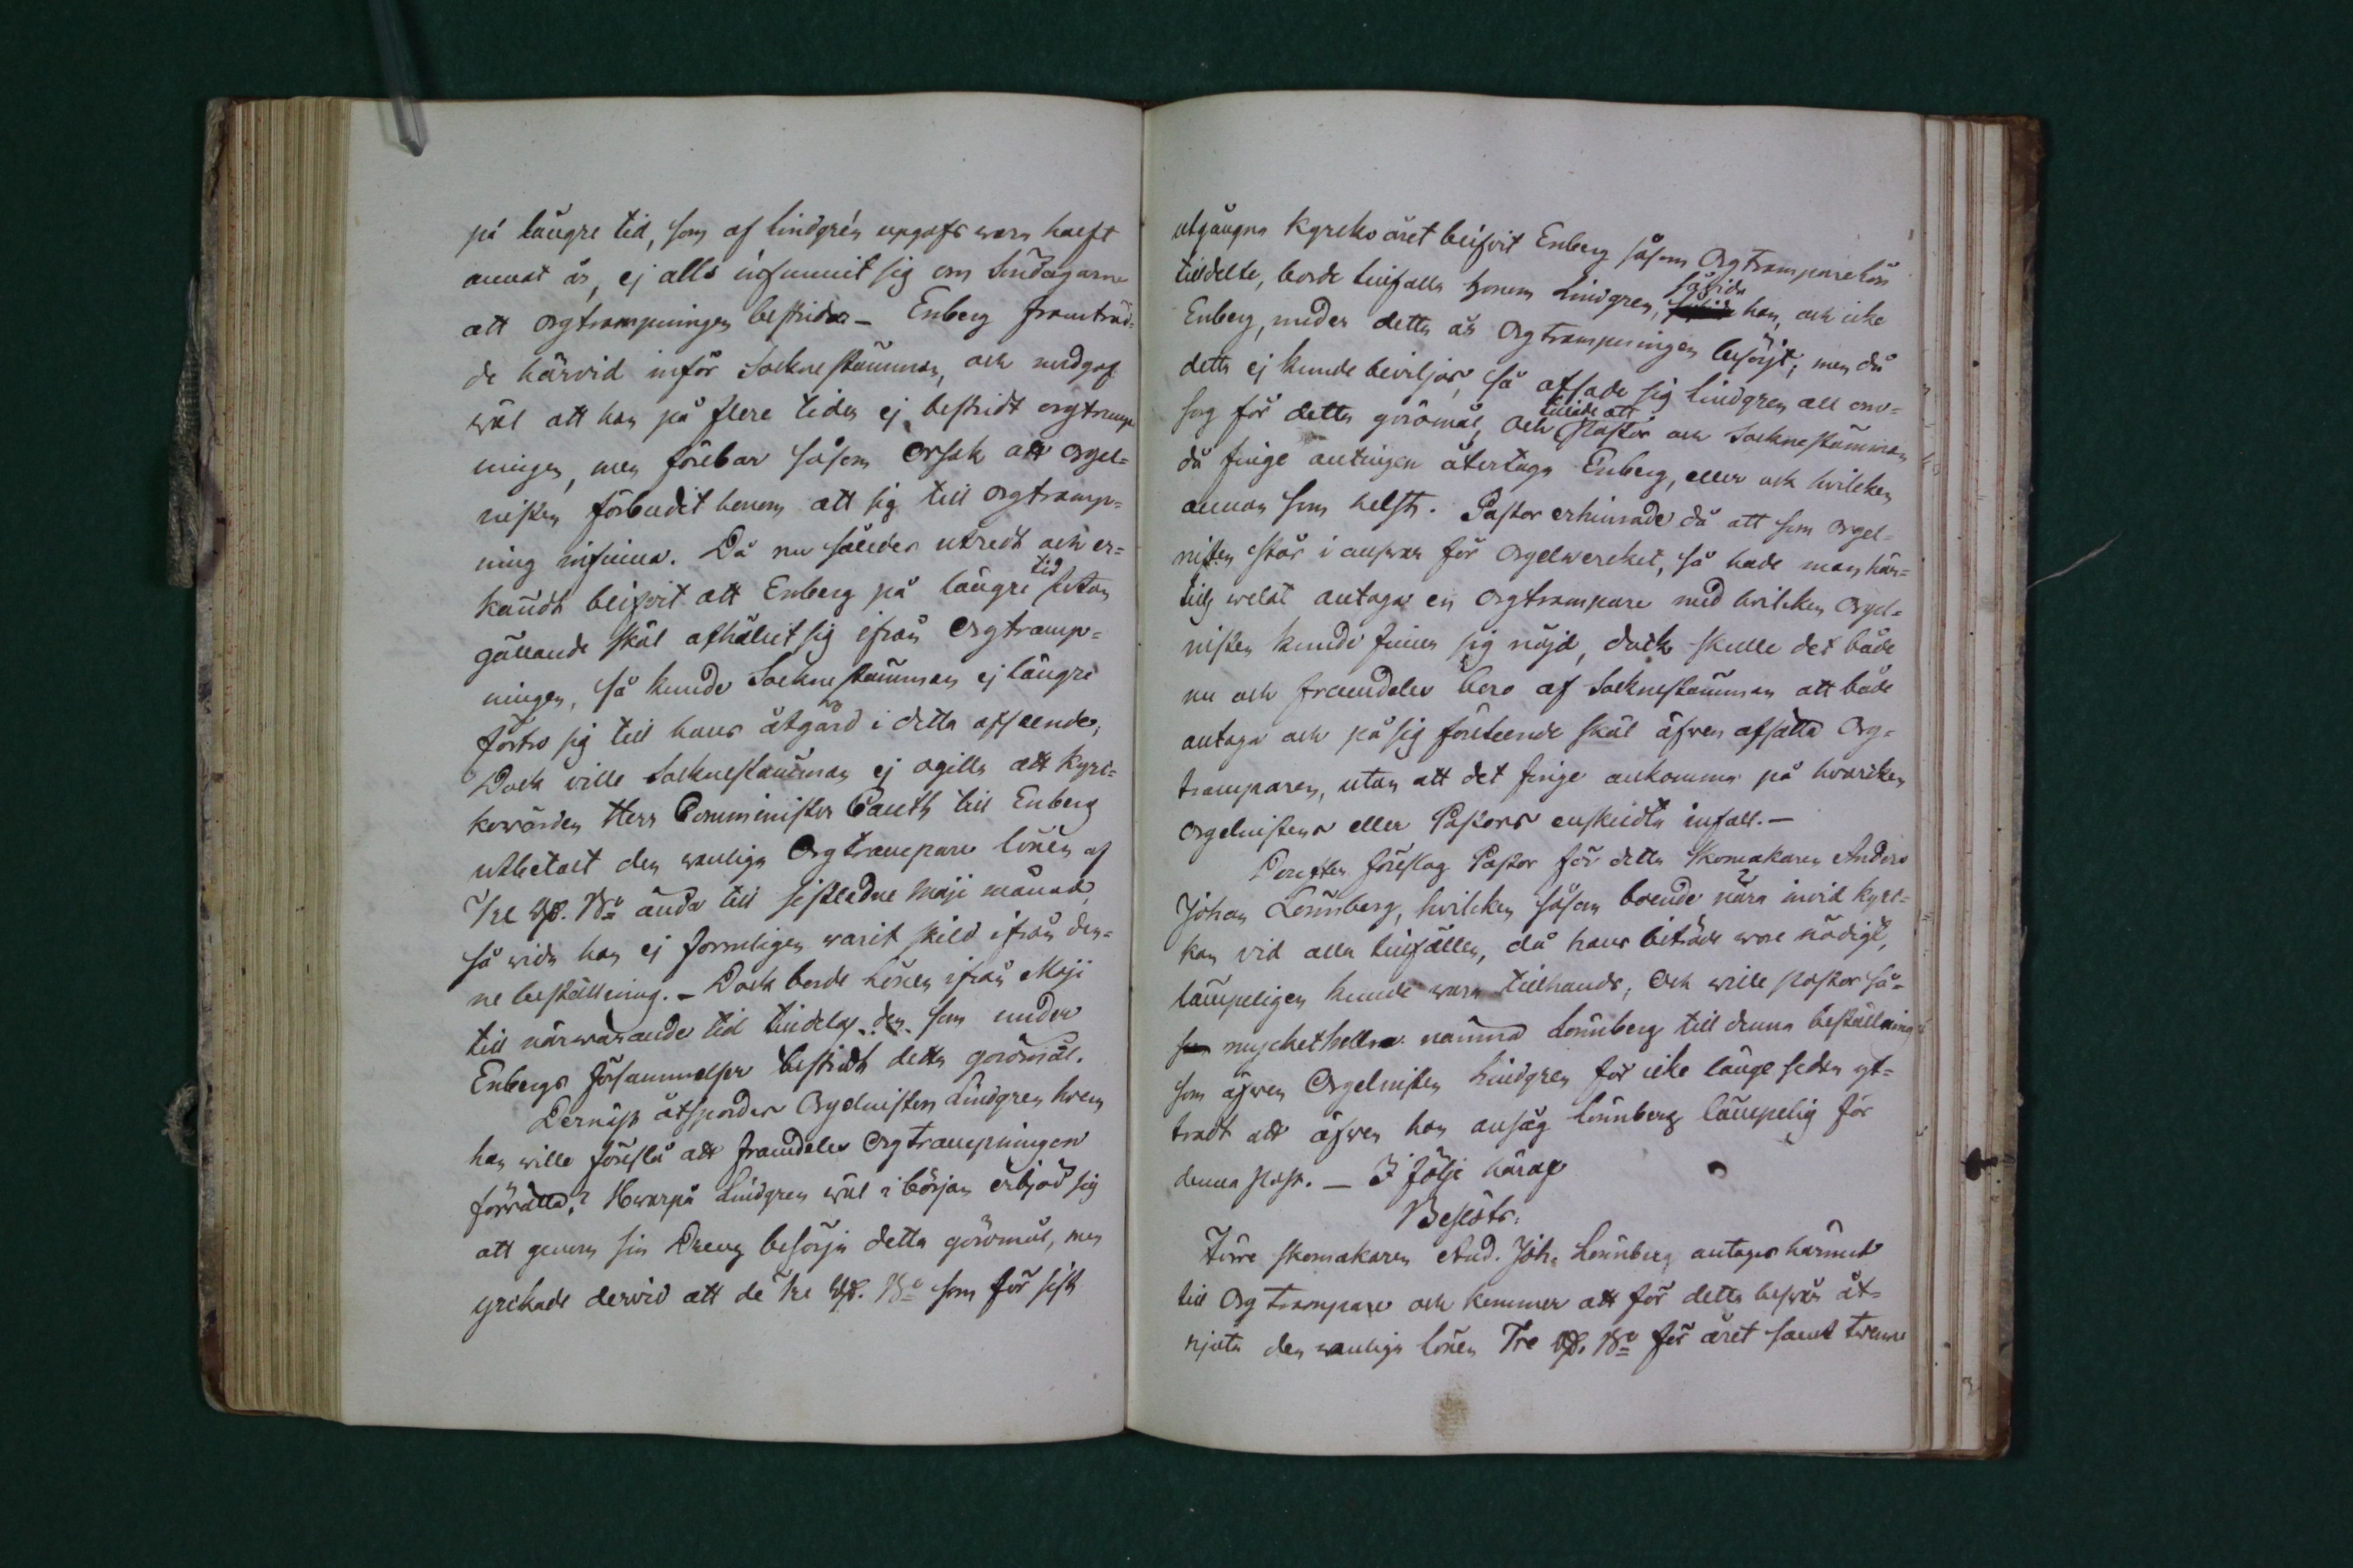 på längre tid, som af Lindgrén uppgafs vara haeft
annat år, ej alls infunnit sig om Söndagarne
att orgtrampningen bestrida – Enberg framträd=
de härvid inför Sockne stämman, och medgaf
wäl att han på flere tider ej bestridt orgtramp
ningen, men förebar såsom orsak att orgel=
nisten förbudit honom att sig till orgtramp=
ning infinna. Då nu således utredt och er=
kändt blifvit att Enberg på längre tid utan
gällande skäl afhållit sig ifrån Orgtramp=
ningen, så kunde Sockne stämman ej längre
förtro sig till hans åtgärd i detta afseende;
Dock ville Sockne stämman ej ogilla att Kyr=
kovärden Herr Comminister Cauth till Enberg
utbetalt den vanliga Orgtrampare lönen af
Tre Rd. Bco ända till sistledne Maji månad,
så vida han ej formligen warit skild ifrån den=
ne beställning. – Dock borde lönen ifrån Maji
till närwarande tid tilldelas den som under
Enbergs försummelser bestridt detta göromål.
Dernäst åtspordes Orgelnisten Lindgren hvem
han wille föreslå att framdeles Orgtrampningen
förrätta? Hwarpå Lindgren wäl i början erbjöd sig
att genom sin Dreng besörja detta göromål, men
yrckade dervid att de Tre Rd. Bco som för sist
utgångna Kyrko året blifvit Enberg såsom Orgtramparelön
tilldelte, borde tillfalla honom Lindgren, såvida han, och icke
Enberg, under detta år Orgtrampningen besörjt; men då
detta ej kunde beviljas, så afsade sig Lindgren all om=
sorg för detta göromål, och tillade att Pastor och Socknestämman
då finge antingen återtaga Enberg, eller ock hvilcken
annan som helst. Pastor erhinrade då att som orgel=
nisten står i answar för Orgelwercket, så hade man här=
till welat antaga en Orgtrampare med hvilcken Orgel=
nisten kunde finna sig nöjd, dock skulle det både
nu och framdeles bero af Socknestämman att både
antaga och på sig företeende skäl äfven afsätta Org=
tramparen, utan att det finge ankomma på hvarcken
Orgelnistens eller Pastors enskildta infall. –
Derefter föreslog Pastor för detta Skomakaren Anders
Johan Lönnberg, hvilcken såsom boende nära invid kyr=
kan vid alla tillfällen, då hans biträde wore nödigt,
lämpeligen kunde wara tillhands; Och wille Pastor så=
mycket hellre nämna Lönnberg till denna beställning
som äfven Orgelnisten Lindgren för icke länge sedan yt=
tradt att äfven han ansåg Lönnberg lämpelig för
denna plats. – I följe häraf
Beslöts:
Förre skomakaren And. Joh. Lönnberg antages härmed
till Orgtrampare och kommer att för detta beswär åt=
njuta den wanliga lönen Tre Rd. Bco för året samt twenne